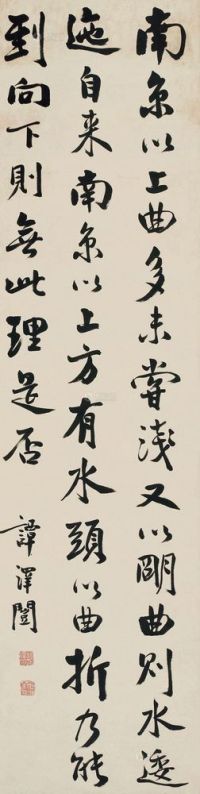 南京以上曲多未嘗淺又以明曲則水逶
迤自来南京以上方有水頭以曲折乃能
到向下則無此理是否
譚澤闓